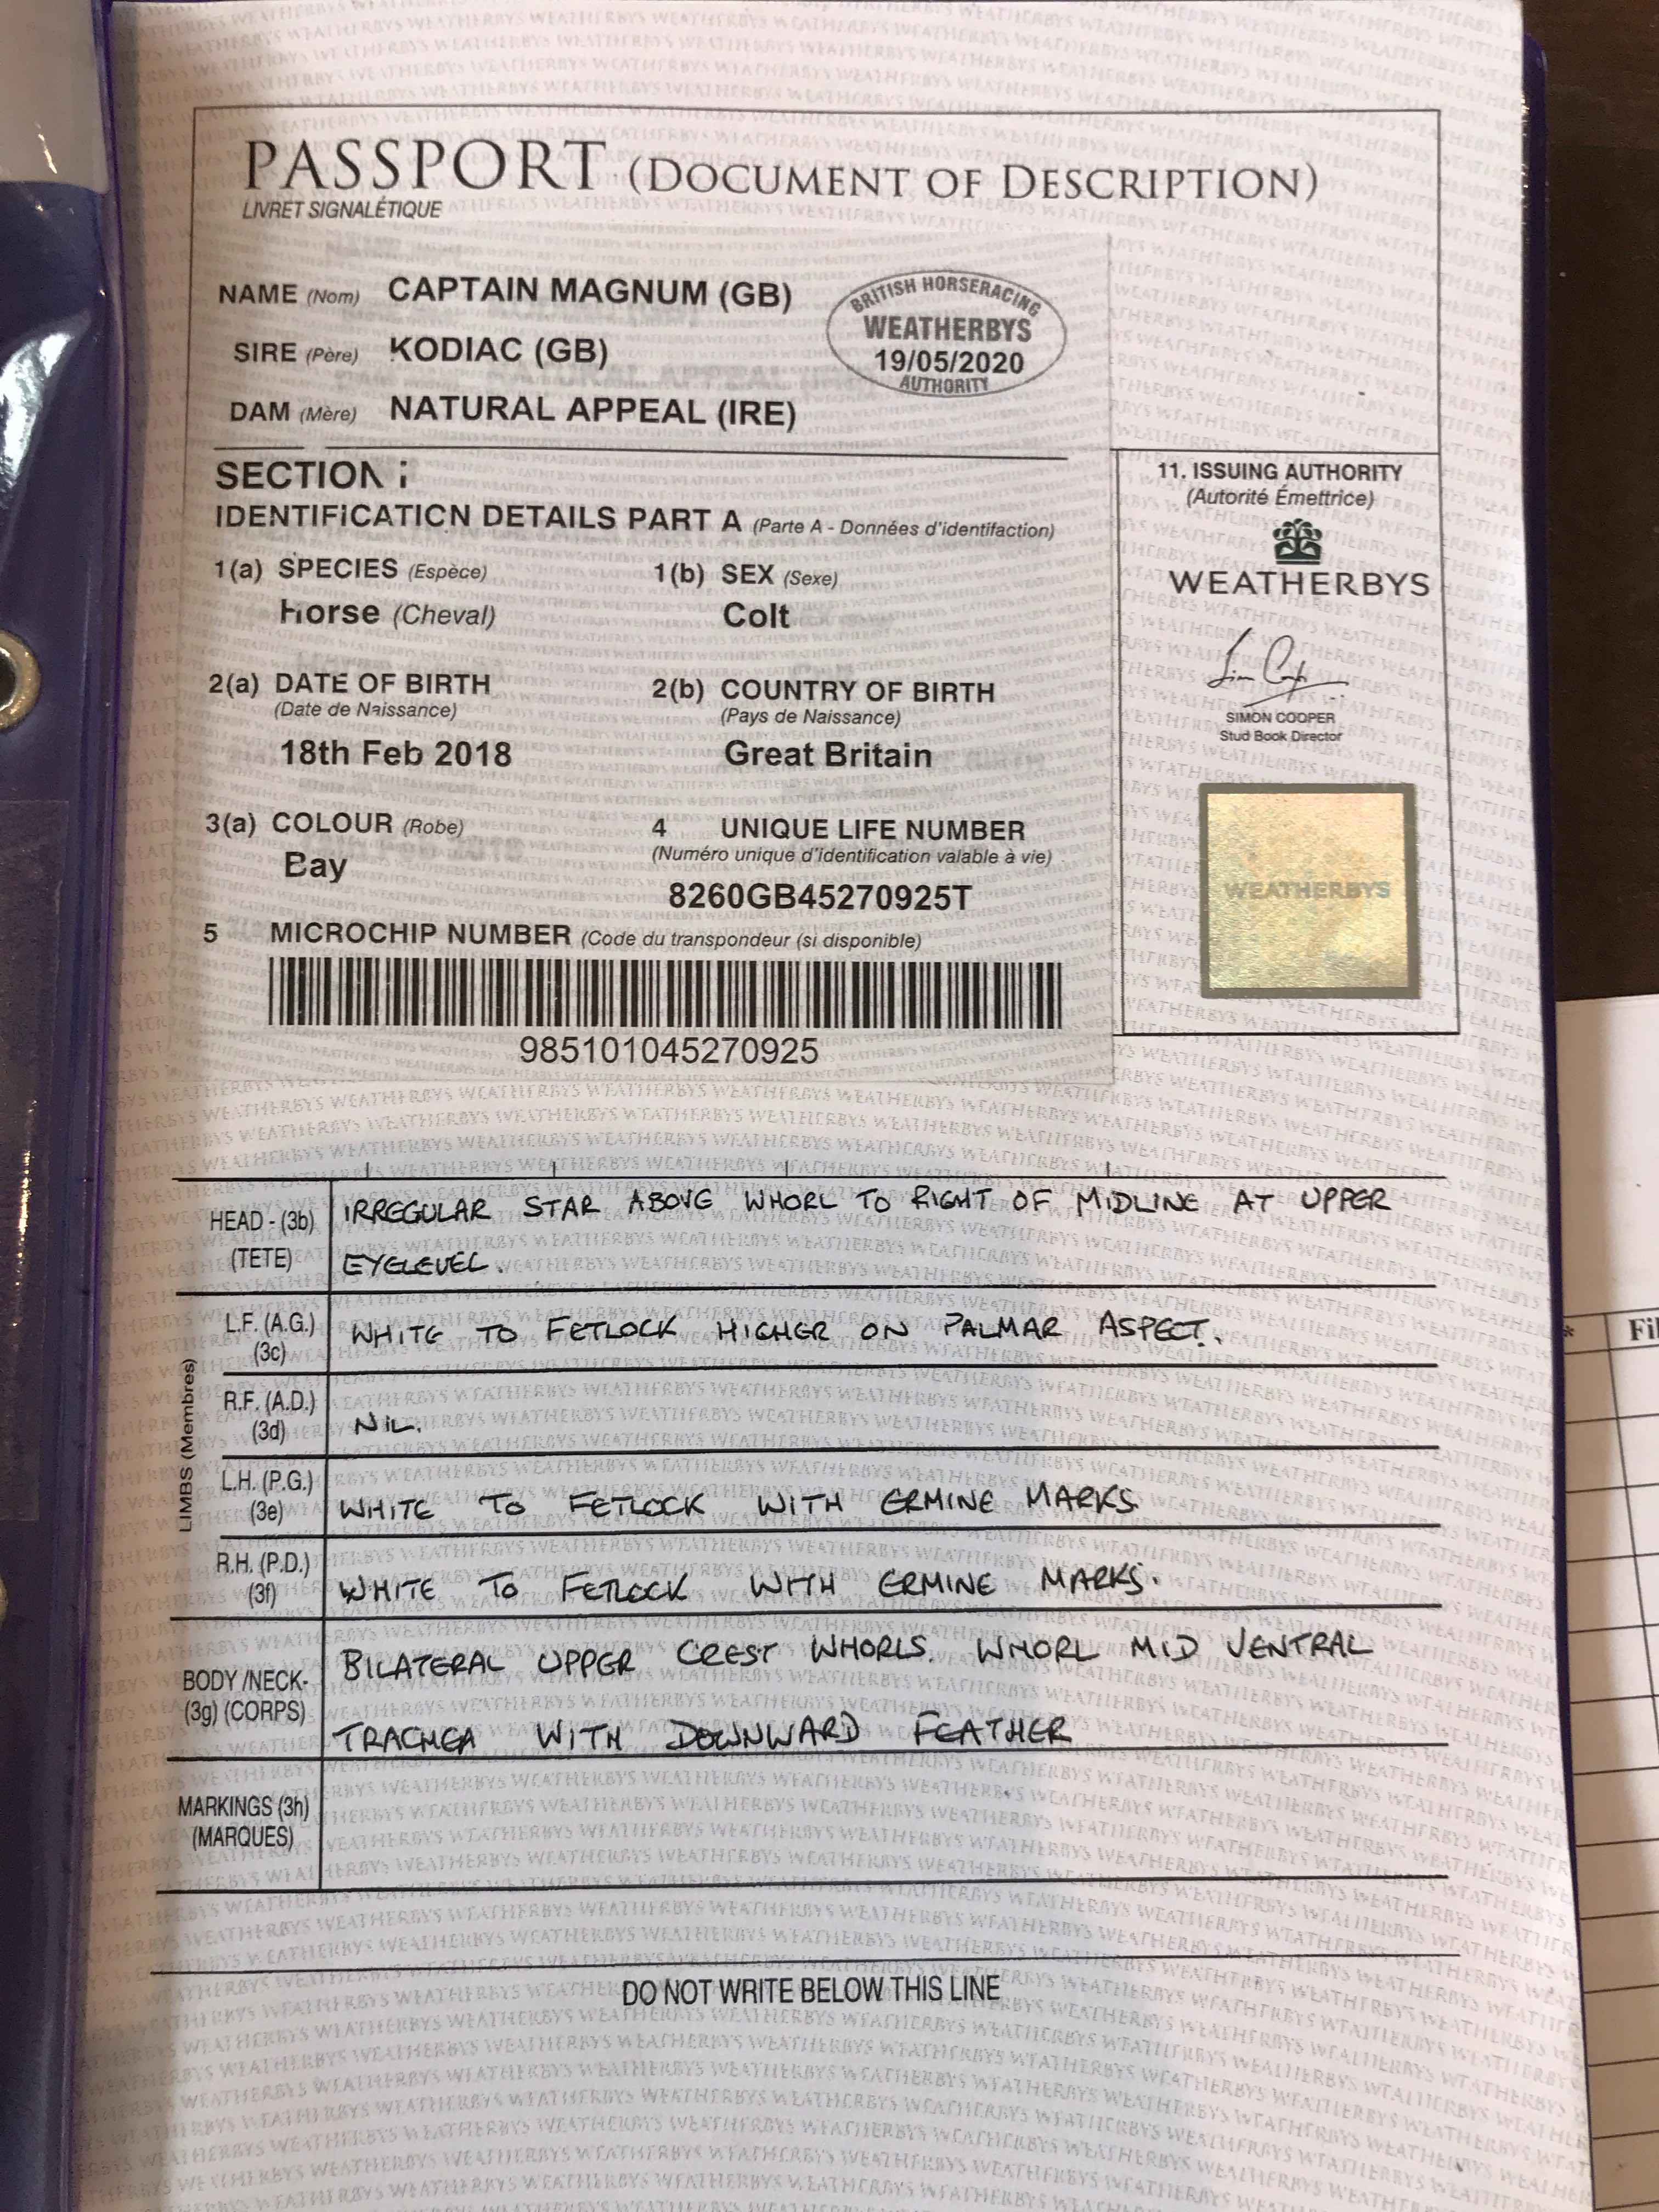 PASSPORT (DOCUMENT OF DESCRIPTION)
LIVRET SIGNALÉTIQUE
NAME (Nom) CAPTAIN MAGNUM (GB)
SIRE (Père) KODIAC (GB)
DAM (Mère) NATURAL APPEAL (IRE)
BRITISH HORSERACING
WEATHERBYS
19/05/2020
AUTHORITY
SECTION
IDENTIFICATION DETAILS PART A (Parte A - Données d'identifaction)
1(a) SPECIES (Espèce) 1(b) SEX (Sexe)
Horse (Cheval) Colt
2(a) DATE OF BIRTH 2(b) COUNTRY OF BIRTH
(Date de Naissance) (Pays de Naissance)
18th Feb 2018 Great Britain
3(a) COLOUR (Robe) 4 UNIQUE LIFE NUMBER
(Numéro unique d'identification valable à vie)
Bay
8260GB45270925T
5 MICROCHIP NUMBER (Code du transpondeur (si disponible)
985101045270925
11. ISSUING AUTHORITY
(Autorité Émettrice)
WEATHERBYS
SIMON COOPER
Stud Book Director
WEATHERBYS
HEAD - (3b) IRREGULAR STAR ABOVE WHORL TO RIGHT OF MIDLINE AT UPPER
(TETE) EYELEVEL.
LIMBS (Membres)
L.F. (A.G.) WHITE TO FETLOCK HIGHER ON PALMAR ASPECT.
(3c)
R.F. (A.D.) NIL.
(3d)
L.H. (P.G.) WHITE TO FETLOCK WITH ERMINE MARKS
(3e)
R.H. (P.D.) WHITE TO FETLOCK WITH ERMINE MARKS.
(3f)
BODY /NECK- BILATERAL UPPER CREST WHORLS. WHORL MID VENTRAL
(3g) (CORPS) TRACHEA WITH DOWNWARD FEATHER
MARKINGS (3h)
(MARQUES)
DO NOT WRITE BELOW THIS LINE